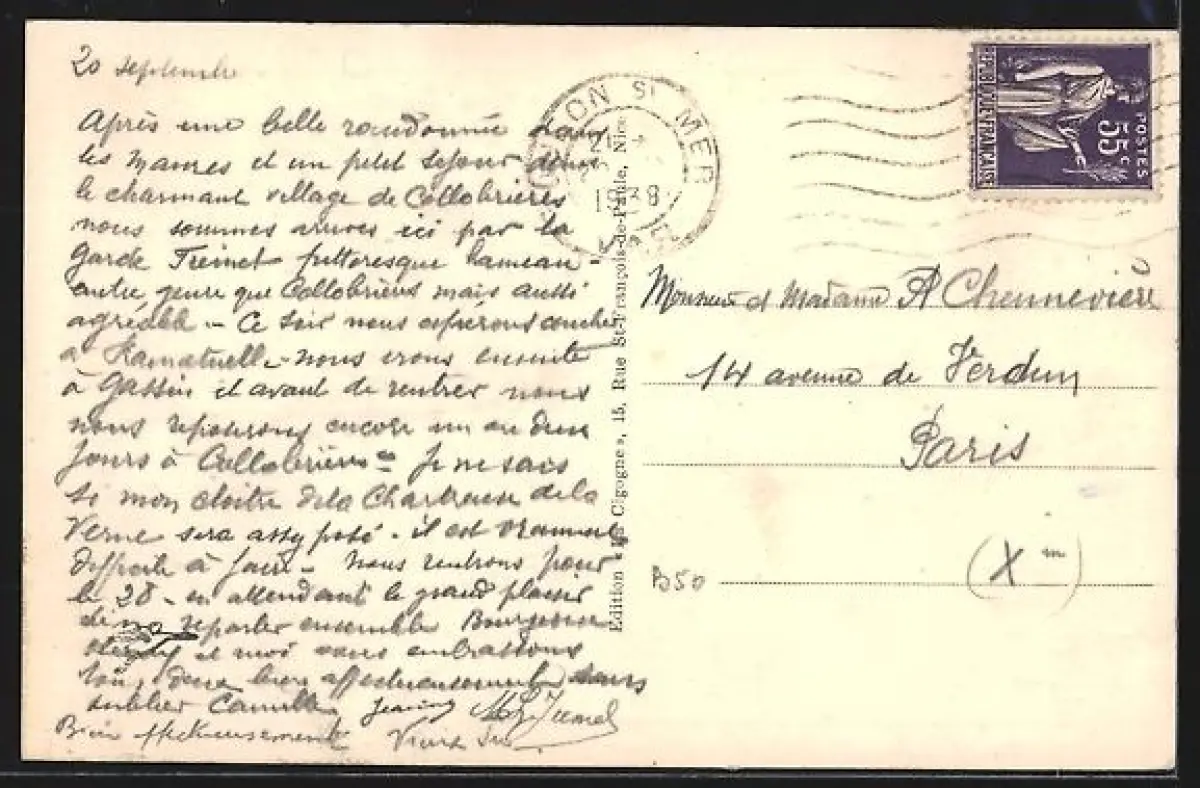 20 septembre
Après une belle randonnée dans
les Maures et un petit séjour dans
le charmant village de Collobrières
nous sommes arrivés ici par la
Garde Freinet pittoresque hameau -
autre genre que Collobrières mais aussi
agréable - Ce soir nous espérons coucher
à Ramatuelle - nous irons ensuite
à Gassin et avant de rentrer nous
nous reposerons encore un ou deux
jours à Collobrières - Je ne sais
si mon cloître de la Chartreuse de la
Verne sera assy posé - il est vraiment
difficile à faire - Nous rentrons pour
le 28 - en attendant le grand plaisir
de reparler ensemble
et moi vous embrassons
tous deux bien affectueusement sans
oublier Camille
Bien affectueusement
Edition « Cigogne », 15, Rue St-François-de-Paule, Nice
ON St MER
21
1938
VAR
REPUBLIQUE FRANÇAISE
POSTES
55c
Monsieur et Madame A Chennevière
14 avenue de Verdun
Paris
(X m)
B50